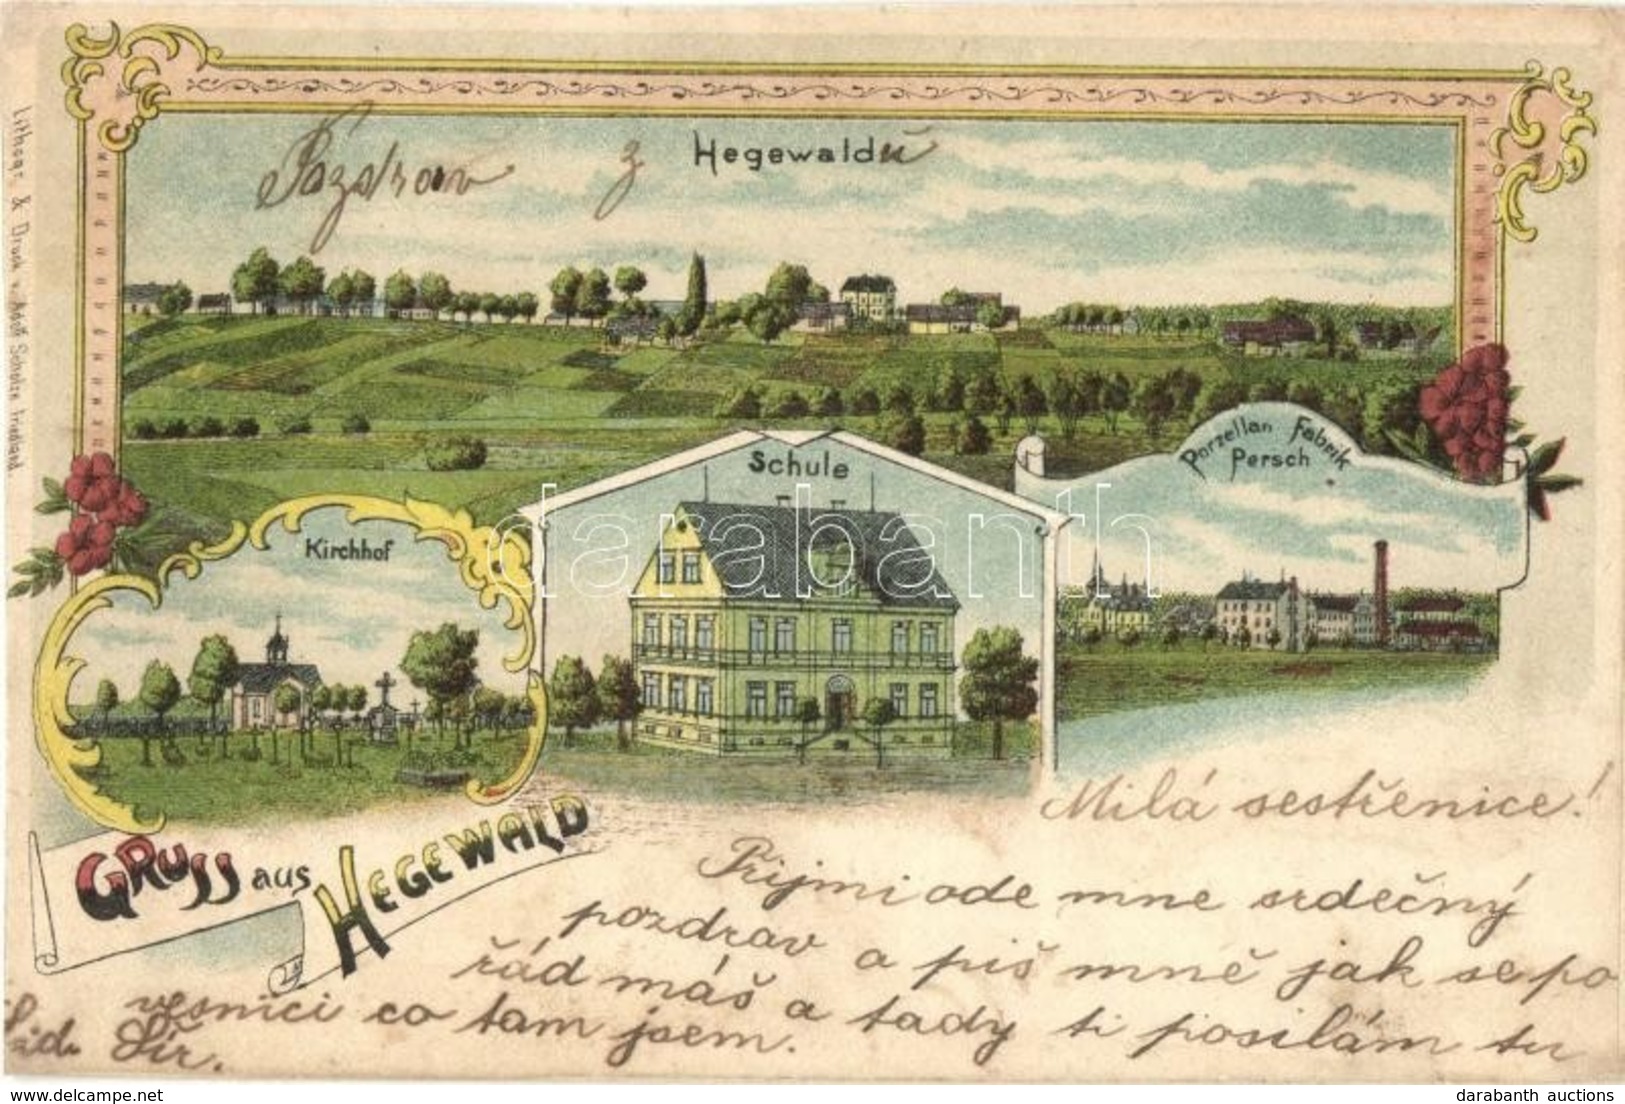 Pozdrav z Hegewaldu
Lithogr. & Druck v. Adolf Scholze, Friedland.
Schule
Porzellan Fabrik
Persch
Kirchhof
darabanth
Gruss aus Hegewald
Milá sestřenice!
Přijmi ode mne srdečný
pozdrav a piš mně jak se po
řád máš a tady ti posílám tu
vesnici co tam jsem.
Sír.
www.delcampe.net
darabanth auctions